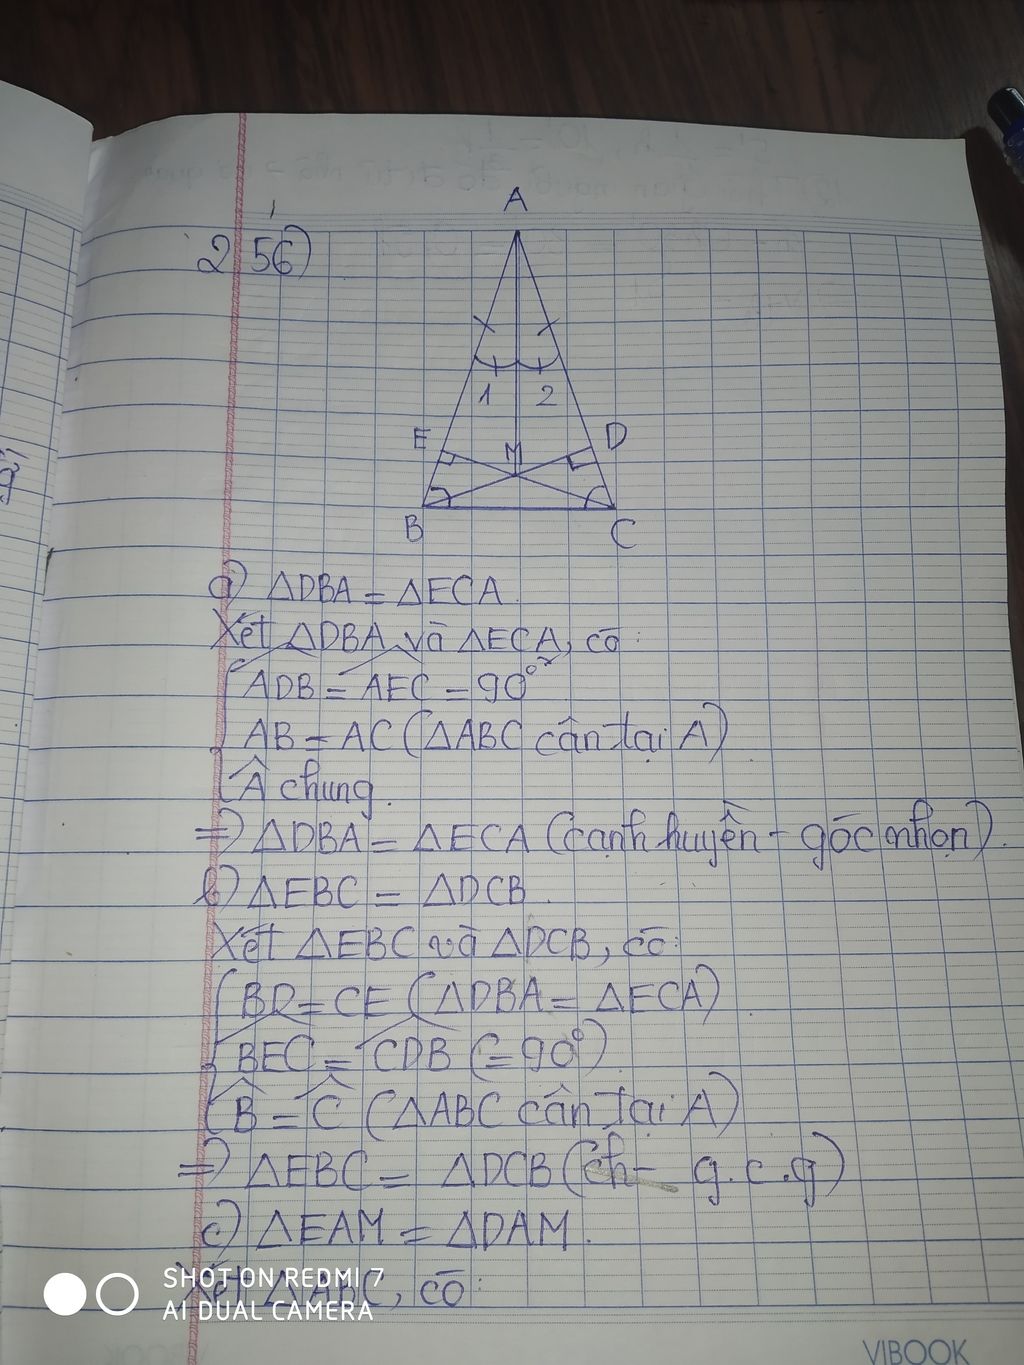 A
2 56)
1 2
E D
M
B C
a) ΔDBA = ΔECA.
Xét ΔDBA và ΔECA, có:
ADB = AEC = 90°
AB = AC (ΔABC cân tại A)
Â chung.
=> ΔDBA = ΔECA (cạnh huyền - góc nhọn).
b) ΔEBC = ΔDCB.
Xét ΔEBC và ΔDCB, có:
BD = CE (ΔDBA = ΔECA)
BEC = CDB (= 90°)
B̂ = Ĉ (ΔABC cân tại A)
=> ΔEBC = ΔDCB (ch - g.c.g)
c) ΔEAM = ΔDAM.
Xét ΔABC, có:
SHOT ON REDMI 7
AI DUAL CAMERA
VIBOOK